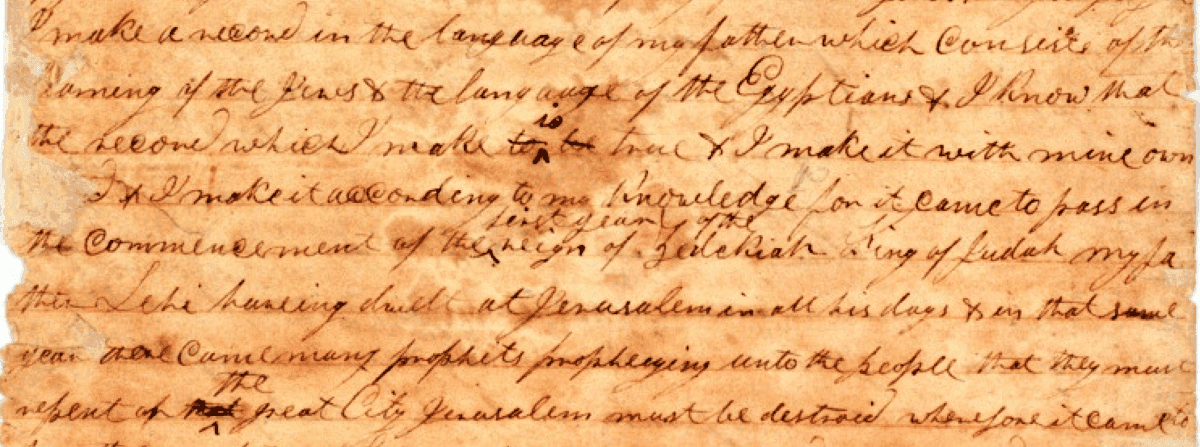 I make a record in the language of my father which consists of the
Learning of the Jews & the language of the Egyptians & I know that
is
the record which I make to be true & I make it with mine own
& I make it according to my knowledge for it came to pass in
first year of the
the commencement of the reign of Zedekiah King of Judah my fa
ther Lehi haveing dwelt at Jerusalem in all his days & in that same
year there came many prophets prophesying unto the people that they must
the
repent or that great City Jerusalem must be destroid wherefore it came to